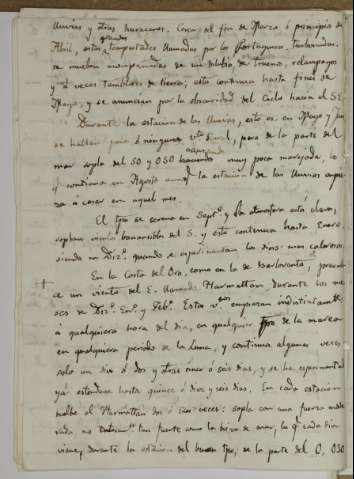 lluvias y otros huracanes. Cerca el fin de Marzo ó principio de
Abril, estas grandes tempestades llamadas por los Portugueses, turbonadas,
se vuelven acompañadas de un diluvio de truenos, relampagos
y á veces temblores de tierra; esto continua hasta fines de
Mayo, y se anuncian por la obscuridad del Cielo hacia el SE.
Durante la estacion de las lluvias, esto es, en Mayo y
se hallan poco ó ninguna señal, pero de la parte del
mar sopla del SO y OSO haciendo muy poca marejada, lo
q.e continua en Agosto aunq.e la estacion de las lluvias empie-
za á cesar en aquel mes.
El tpo se serena en Sept.e y la atmosfera está clara,
soplan vientos bonancibles del S. y esto continua hasta Enero,
siendo en Diz.e quando se experimentan los dias mas calorosos.
En la Costa del Oro, como en la de Barlovento, se
ce un viento del E. llamado Harmattan, durante los me-
ses de Diz.e, En.o y Feb.o. Estos v.tos empiezan indistintam.te
á qualquiera hora del dia, en qualquier tpo de la marea
en qualquiera periodo de la Luna, y continua algunas veces
solo un dia ó dos y otras cinco ó seis dias, y se ha experimentado
ya estenderse hasta quince ó diez y seis dias. En cada estacion
vuelve el Harmattan dos ó tres veces: sopla con una fuerza mode
rada, no tan fuerte como la brisa de mar, la q.e cada dia
viene, durante la estacion del buen tpo, de la parte del O, OSO